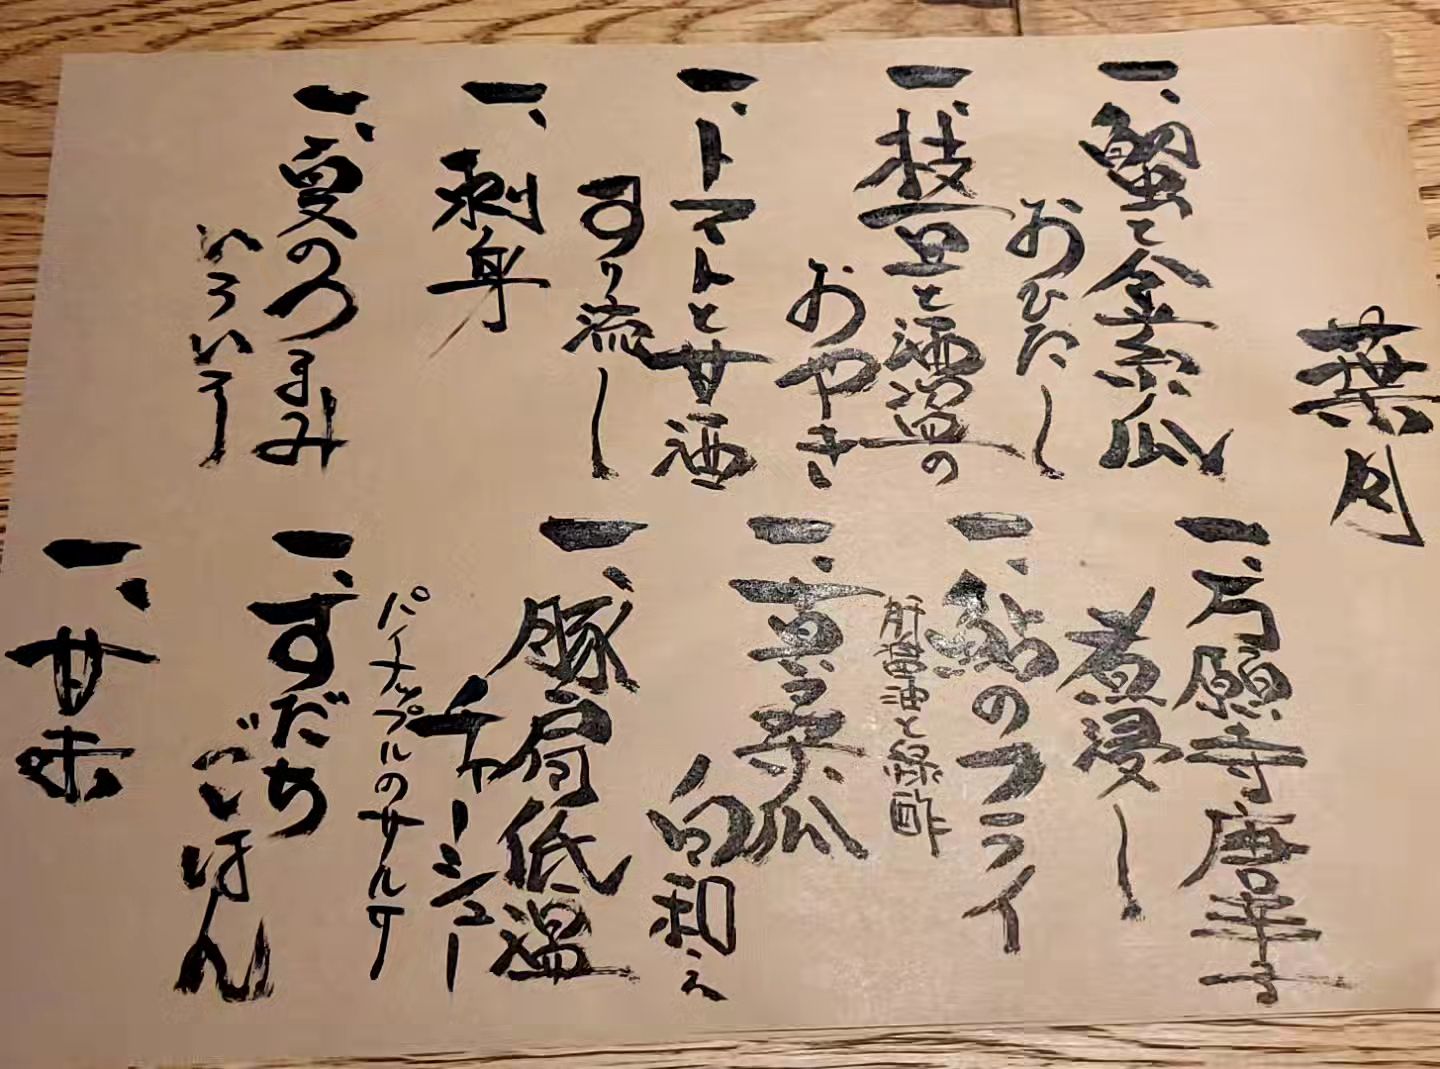 葉月
一、蟹と金糸瓜
おひたし
一、枝豆と酒盗の
おやき
一、トマトと甘酒
すり流し
一、刺身
一、夏のつまみ
いろいろ
一、万願寺唐辛子
煮浸し
一、鮎のフライ
肝醤油と緑酢
一、真桑瓜
白和え
一、豚肩低温
チャーシュー
パイナップルのサルサ
一、すだち
ごはん
一、甘味